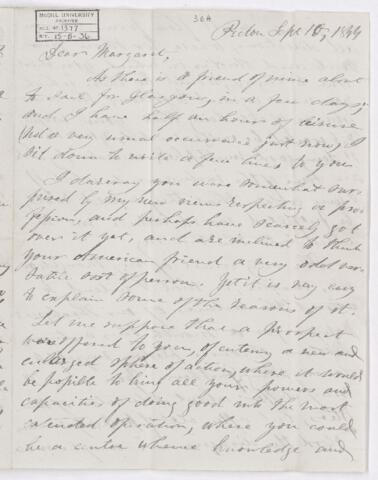 McGILL UNIVERSITY
ACC. NO. 1377
REF. 15-6-36
36A
Pictou Sept 10, 1844
Dear Margaret,
As there is a friend of mine about
to sail for Glasgow, in a few days,
and I have half an hours leisure
(not a very usual occurrence just now) I
sit down to write a few lines to you
I daresay you were somewhat sur-
prised by my new views respecting a pro-
fession, and perhaps have scarcely got
over it yet, and are inclined to think
your American friend a very odd
sort of person. Yet it is very easy
to explain some of the reasons of it.
Let me suppose that a prospect
were opened to you, of entering a new and
enlarged sphere of action, where it would
be possible to bring all your powers and
capacities of doing good into the most
extended operation, where you could
be a centre whence knowledge and